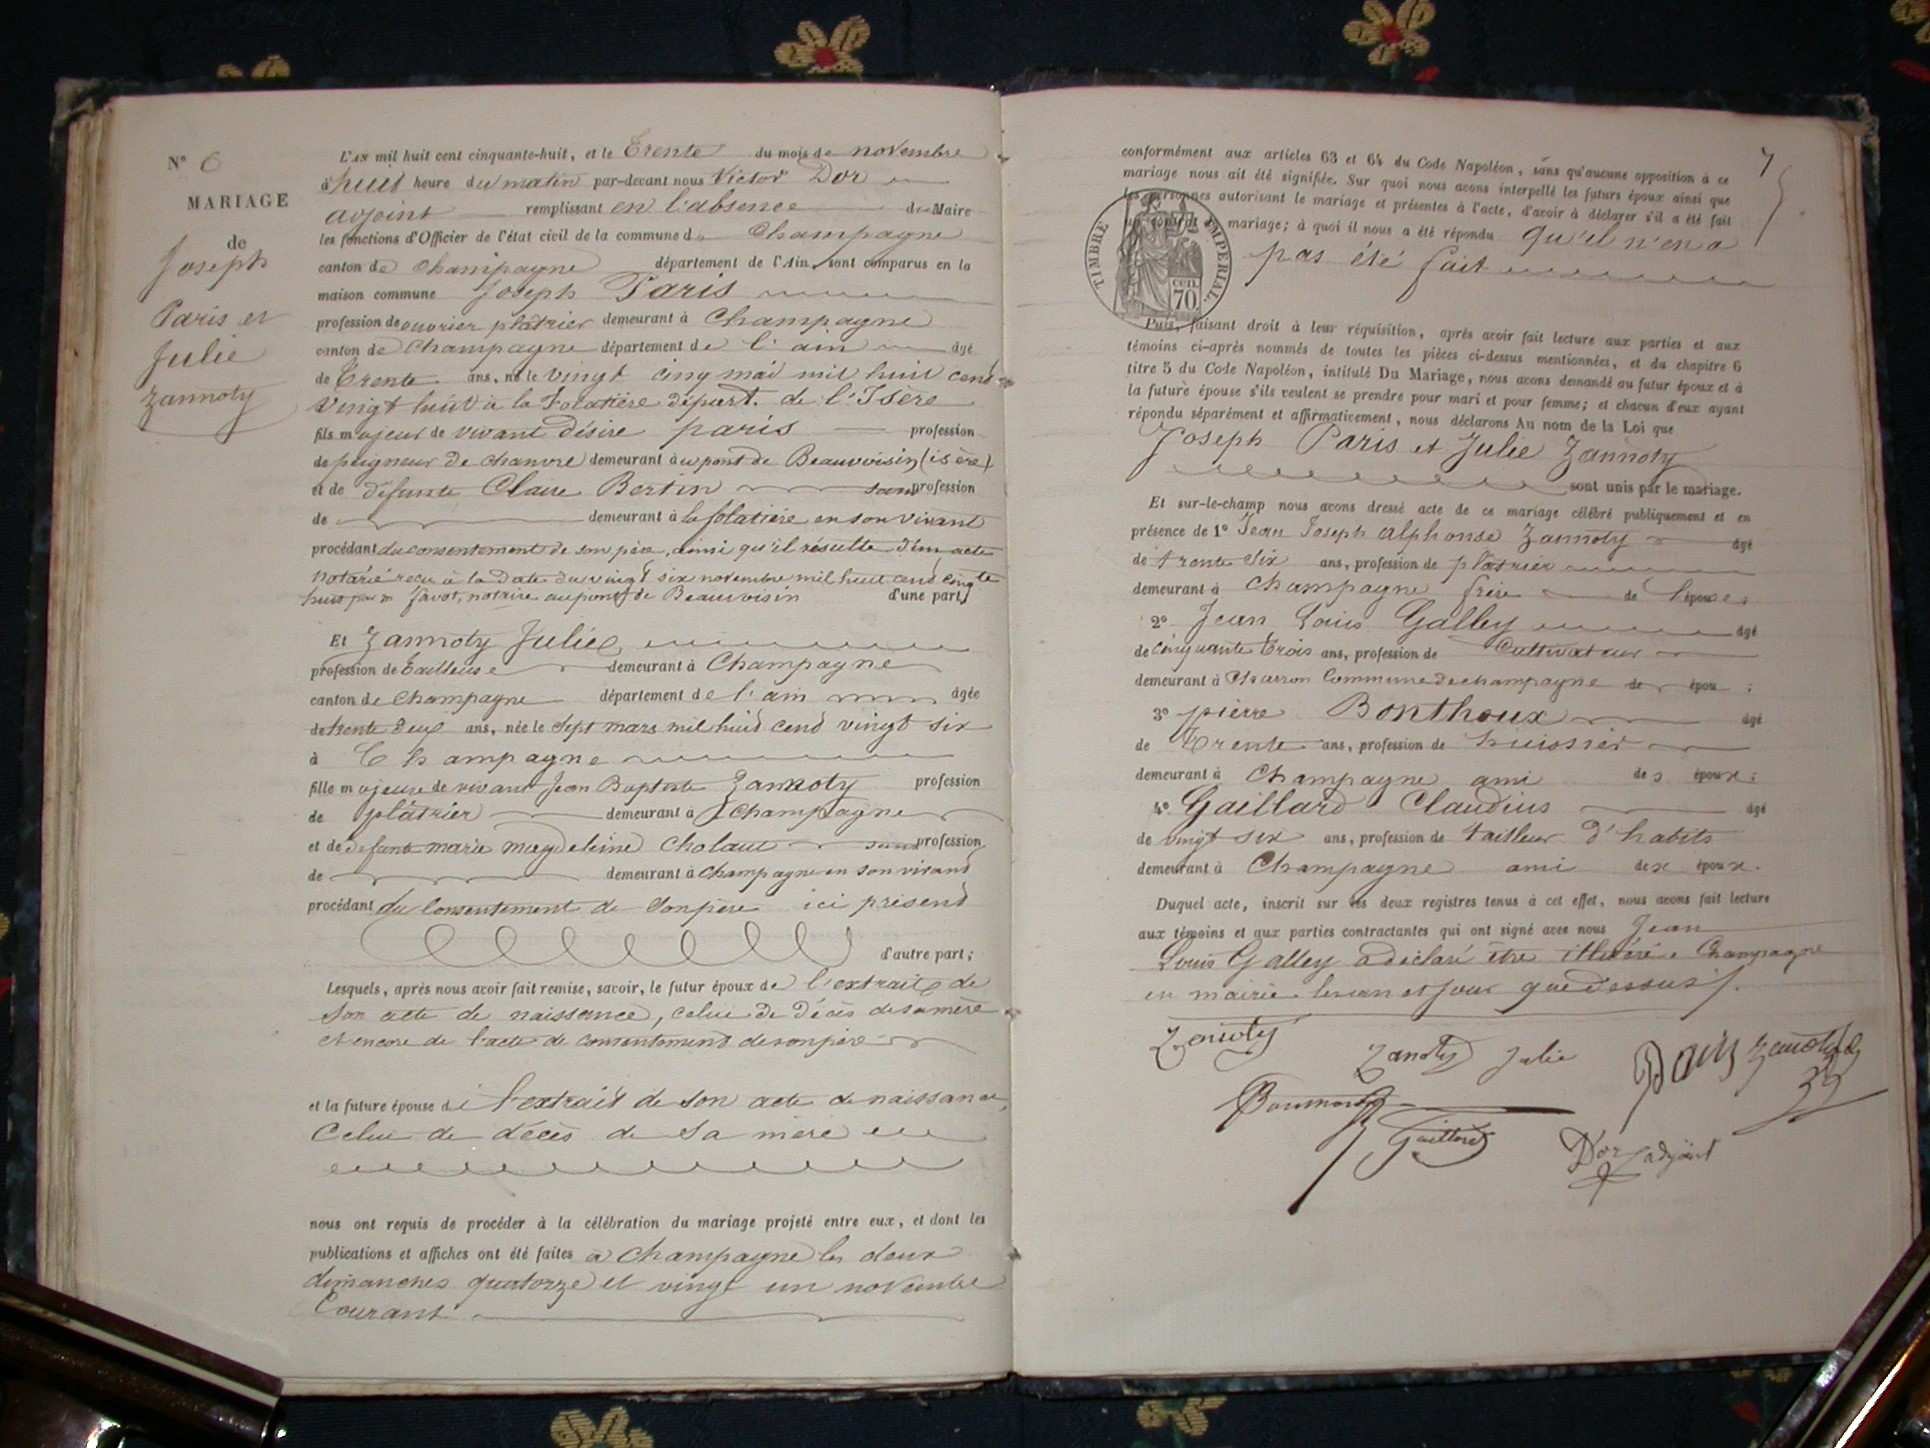 N° 6
MARIAGE
de
Joseph
Paris et
Julie
Zannoty
L'AN mil huit cent cinquante-huit, et le Trente du mois de novembre
à huit heure du matin par-devant nous Victor Dor
adjoint remplissant en l'absence du Maire
les fonctions d'Officier de l'état civil de la commune de Champagne
canton de Champagne département de l'Ain, sont comparus en la
maison commune Joseph Paris
profession de ouvrier platrier demeurant à Champagne
canton de Champagne département de l'ain âgé
de Trente ans, né le vingt cinq mai mil huit cent
vingt huit à la Folatière départ. de l'Isère
fils majeur de vivant désire paris profession
de peigneur de chanvre demeurant au pont de Beauvoisin (isère)
et de défunte Claire Bertin sans profession
de demeurant à la folatière en son vivant
procédant du consentement de son père, ainsi qu'il résulte d'un acte
notarié recu à la date du vingt six novembre mil huit cent cinqte
huit par m Javot, notaire au pont de Beauvoisin d'une part;
Et Zannoty Julie
profession de tailleuse demeurant à Champagne
canton de Champagne département de l'ain âgée
de trente deux ans, née le sept mars mil huit cent vingt six
à Champagne
fille majeure de vivant Jean Baptiste Zannoty profession
de plâtrier demeurant à Champagne
et de défunte marie magdeleine Cholaut sans profession
de demeurant à Champagne en son vivant
procédant du Consentement de Son père ici présent
d'autre part;
Lesquels, après nous avoir fait remise, savoir, le futur époux de l'extrait de
Son acte de naissance, celui de décès de sa mère
et encore de l'acte de consentement de son père
et la future épouse de l'extrait de son acte de naissance,
Celui de décès de sa mère
nous ont requis de procéder à la célébration du mariage projeté entre eux, et dont les
publications et affiches ont été faites à Champagne les deux
dimanches quatorze et vingt un novembre
Courant
7
conformément aux articles 63 et 64 du Code Napoléon, sans qu'aucune opposition à ce
mariage nous ait été signifiée. Sur quoi nous avons interpellé les futurs époux ainsi que
les personnes autorisant le mariage et présentes à l'acte, d'avoir à déclarer s'il a été fait
un contrat de mariage; à quoi il nous a été répondu qu'il n'en a
pas été fait
TIMBRE IMPERIAL.
CENT. 70
Puis, faisant droit à leur réquisition, après avoir fait lecture aux parties et aux
témoins ci-après nommés de toutes les pièces ci-dessus mentionnées, et du chapitre 6
titre 5 du Code Napoléon, intitulé Du Mariage, nous avons demandé au futur époux et à
la future épouse s'ils veulent se prendre pour mari et pour femme; et chacun d'eux ayant
répondu séparément et affirmativement, nous déclarons Au nom de la Loi que
Joseph Paris et Julie Zannoty
sont unis par le mariage.
Et sur-le-champ nous avons dressé acte de ce mariage célébré publiquement et en
présence de 1° Jean Joseph alphonse Zannoty âgé
de trente Six ans, profession de platrier
demeurant à Champagne frère de l'épouse
2° Jean Louis Galley âgé
de cinquante trois ans, profession de Cultivateur
demeurant à Charron Commune de champagne de épou ;
3° pierre Bonthoux âgé
de Trente ans, profession de huissier
demeurant à Champagne ami des époux;
4° Gaillard Claudius âgé
de vingt six ans, profession de tailleur d'habits
demeurant à Champagne ami des époux.
Duquel acte, inscrit sur les deux registres tenus à cet effet, nous avons fait lecture
aux témoins et aux parties contractantes qui ont signé avec nous Jean
Louis Galley a déclaré être illitéré. Champagne
en mairie les an et jour que dessus.
Zanoty
Zanoty Julie
Paris
Zanoty
Gaillard
Dor adjoint